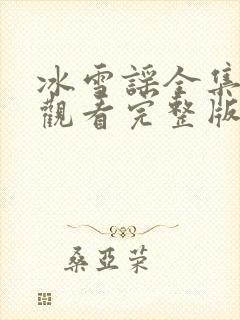 冰雪謠全集
觀看完整版
桑亞荣